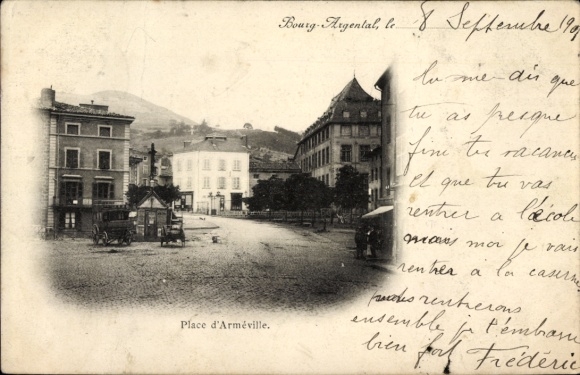 Bourg-Argental, le 8 Septembre 190
Tu me dis que
tu as presque
fini tes vacances
et que tu vas
rentrer a l'école
mais moi je vais
rentrer à la caserne
nous rentrerons
ensemble je t'embrasse
bien fort Frédéric
Place d'Arméville.